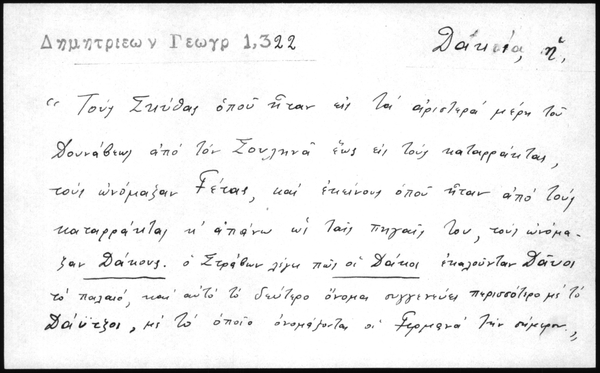 Δημητριεων Γεωγρ 1,322
Δάκεία, ἡ,
“ Τοὺς Σκύθας ὁποῦ ἦταν εἰς τὰ ἀριστερὰ μέρη τοῦ
Δουνάβεως ἀπὸ τὸν Σουλινᾶ ἕως εἰς τοὺς καταρράκτας,
τοὺς ὠνόμαζαν Γέτας, καὶ ἐκείνους ὁποῦ ἦταν ἀπὸ τοὺς
καταρράκτας κ' ἀπάνω ὡς ταῖς πηγαῖς του, τοὺς ὠνόμα-
ζαν Δάκους. ὁ Στράβων λέγει πῶς οἱ Δάκοι ἐκαλοῦνταν Δᾶοι
τὸ παλαιό, καὶ αὐτὸ τὸ δεύτερο ὄνομα συγγενεύει περισσότερο μὲ τὸ
Δάϋτζοι, μὲ τὸ ὁποῖο ὀνομάζονται οἱ Γερμανοὶ τὴν σήμερον.„